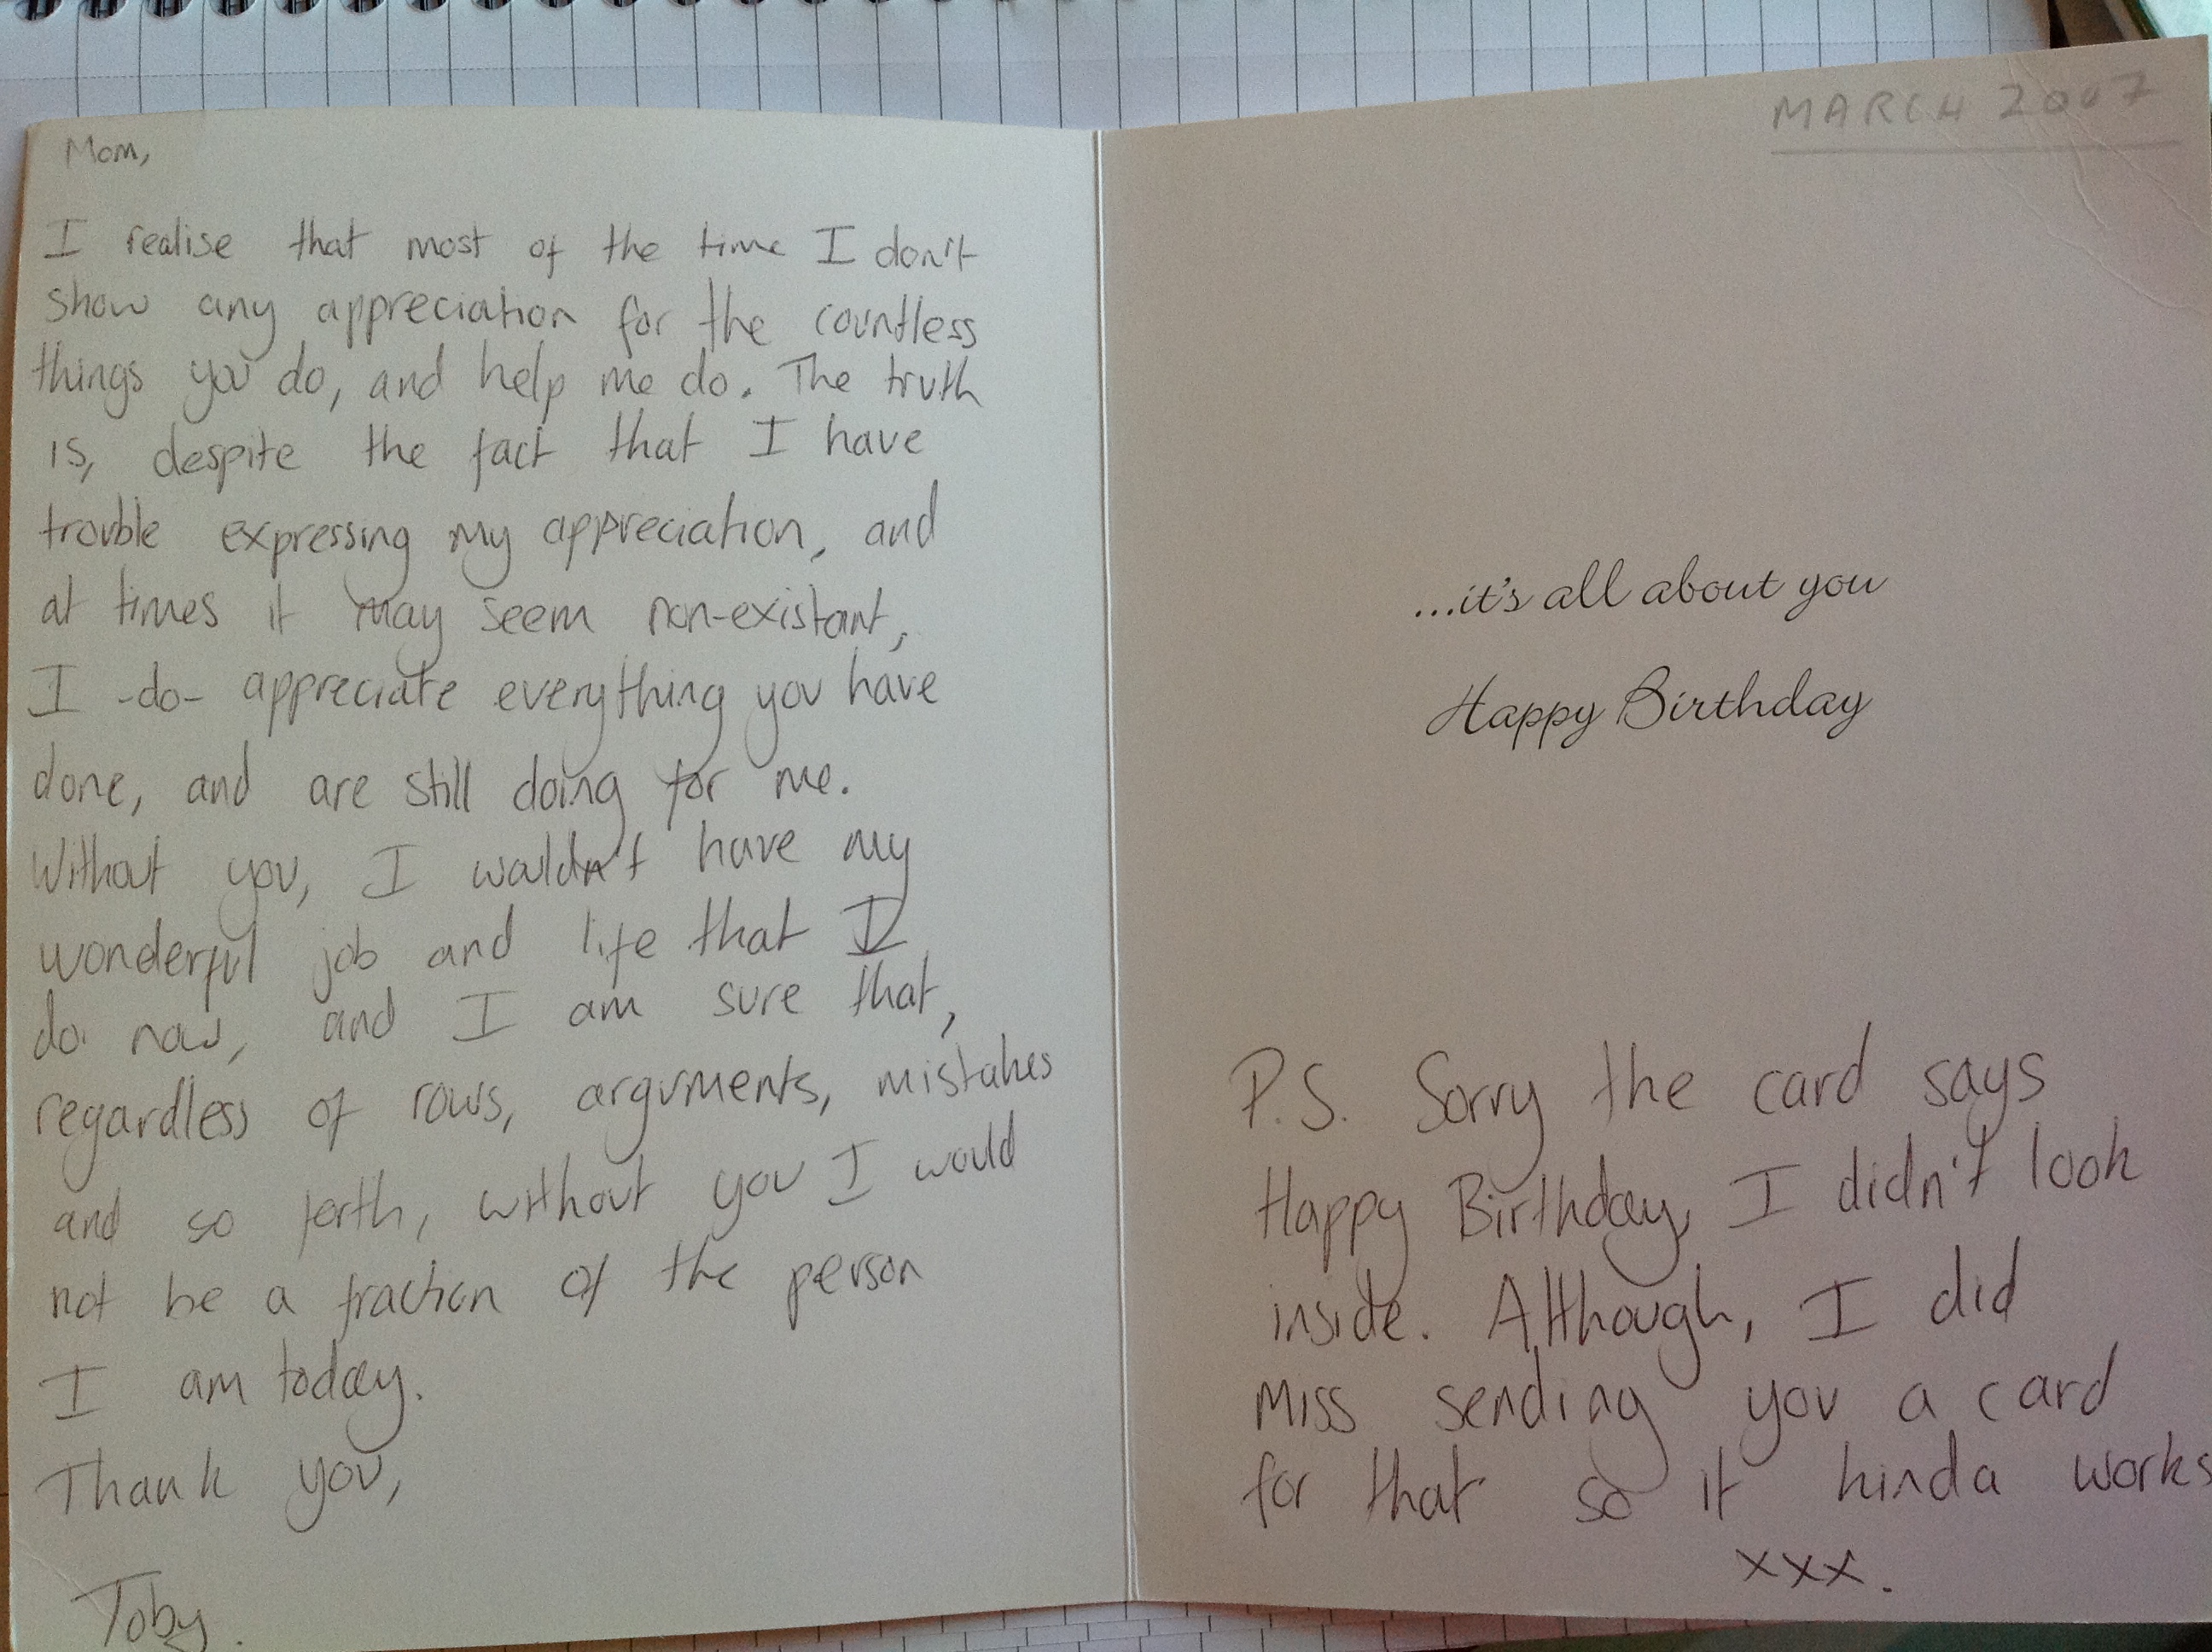 Mom,
I realise that most of the time I don't
show any appreciation for the countless
things you do, and help me do. The truth
is, despite the fact that I have
trouble expressing my appreciation, and
at times it may seem non-existant,
I -do- appreciate everything you have
done, and are still doing for me.
Without you, I wouldn't have my
wonderful job and life that I
do now, and I am sure that,
regardless of rows, arguments, mistakes
and so forth, without you I would
not be a fraction of the person
I am today.
Thank you,
Toby.
MARCH 2007
...it's all about you
Happy Birthday
P.S. Sorry the card says
Happy Birthday, I didn't look
inside. Although, I did
miss sending you a card
for that so it kinda works
xxx.